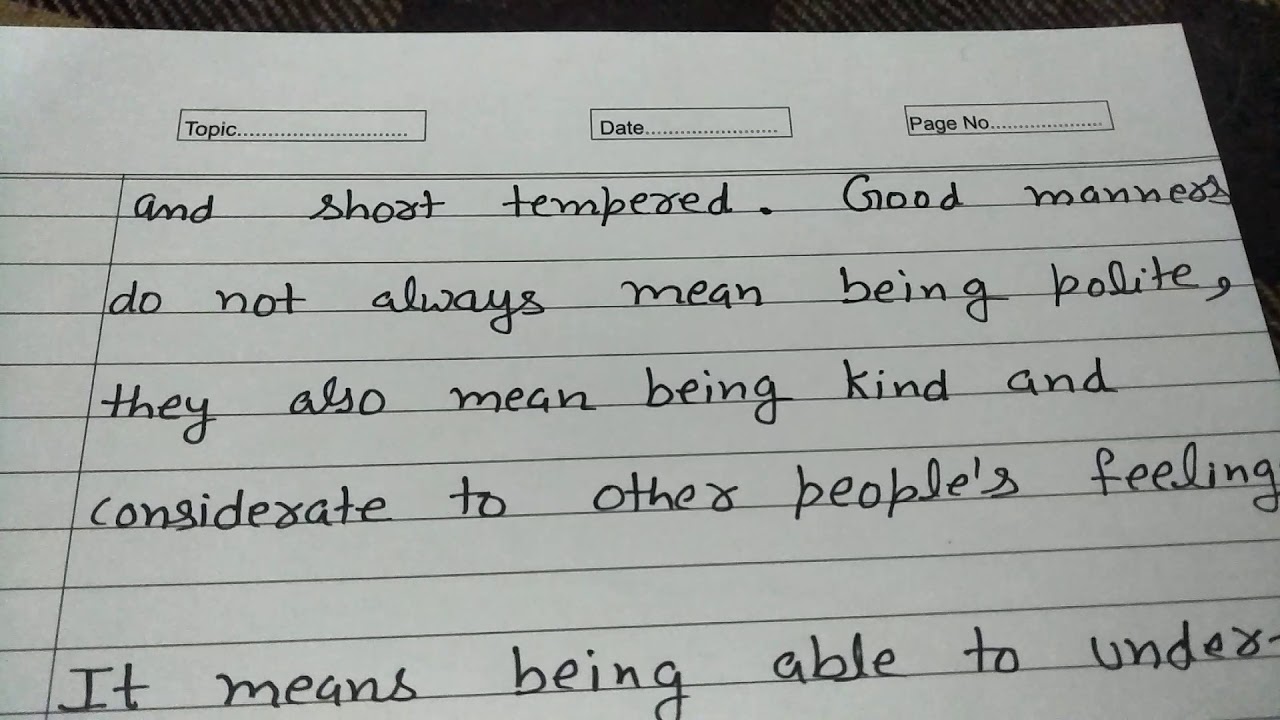 Topic............................ Date....................... Page No...................
and short tempered. Good manners
do not always mean being polite,
they also mean being kind and
considerate to other people's feeling
It means being able to under-